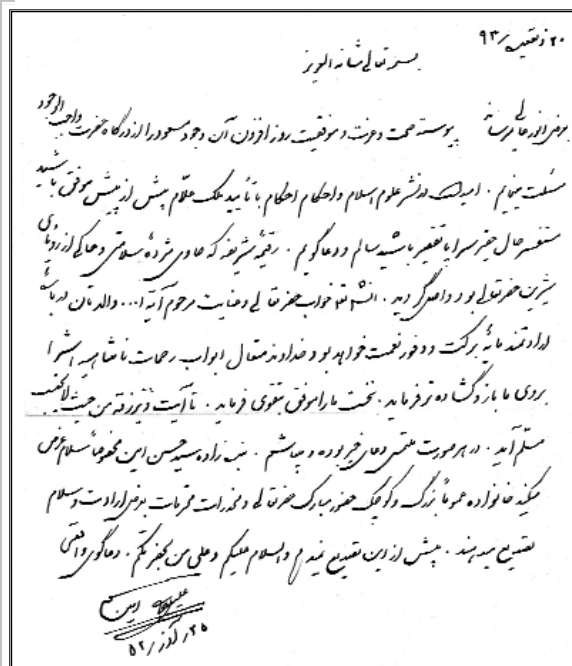 ۲۰ ذیقعده ۹۳
بسمه تعالی شأنه العزیز
بعرض انور عالی میرساند پیوسته صحت و عزت و موفقیت روزافزون آن وجود مسعود را از درگاه حضرت واجب الوجود
مسئلت مینمایم . امید است در نشر علوم اسلام و احکام با تأیید ملک علّام بیش از پیش موفق باشید
مستفسر حال حقیر سراپا تقصیر باشید سالم و دعاگویم . رقیمهٔ شریفه که حاوی مژدهٔ سلامتی و حاکی از رویای
شیرین حضرتعالی بود واصل گردید . انشاءالله خواب حضرتعالی و عنایت مرحوم آیة ا... والدتان درباره
ارادتمند مایهٔ برکت و وفور نعمت خواهد بود و خداوند متعال ابواب رحمات نامتناهیه اش را
بروی ما باز و گشاده تر فرماید . نخست ما را موفق بتقوی فرماید . تا آیت و یرزقه من حیث لا یحتسب
مسلّم آید . در هر صورت ملتمس دعای خیر بوده و میباشم . بنده زاده سید حسن امین مخصوصاً سلام عرض
میکند خانواده عموماً بزرگ و کوچک حضور مبارک حضرتعالی و مخدرات محترمات بعرض ارادت و سلام
تصدیع میدهند . بیش از این تصدیع نمیدهم والسلام علیکم و علی من بحضرتکم . دعاگوی واقعی
امین
۲۵ آذر ۵۲